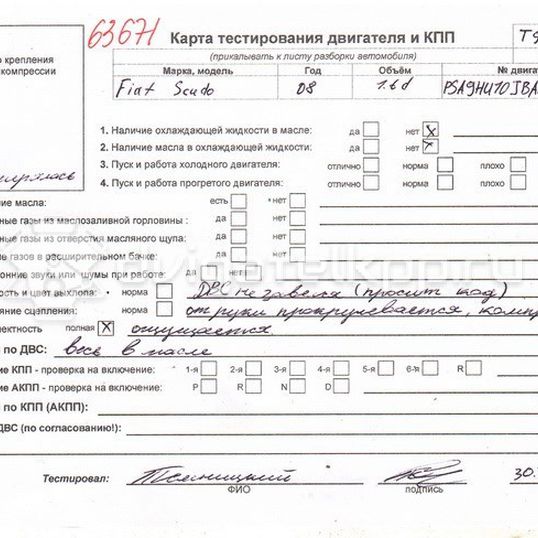 63671 Карта тестирования двигателя и КПП
о крепления (прикалывать к листу разборки автомобиля)
компрессии Марка, модель Год Объём № двигат
Fiat Scudo 08 1.6d PSA9HU10JBA
1. Наличие охлаждающей жидкости в масле: да нет x
2. Наличие масла в охлаждающей жидкости: да нет x
3. Пуск и работа холодного двигателя: отлично норма плохо
4. Пуск и работа прогретого двигателя: отлично норма плохо
ие масла: есть нет
ные газы из маслозаливной горловины : да нет
ные газы из отверстия масляного щупа: да нет
ие газов в расширительном бачке: да нет
онние звуки или шумы при работе: да нет
ость и цвет выхлопа: норма ДВС не завели (просит код)
ояние сцепления: норма от руки прокручивается, компр
лектность полная x ощущается.
по ДВС: весь в масле
ие КПП - проверка на включение: 1-я 2-я 3-я 4-я 5-я 6-я R
ие АКПП - проверка на включение: P R N D
по КПП (АКПП):
ДВС (по согласованию!):
Тестировал: 30.
ФИО подпись